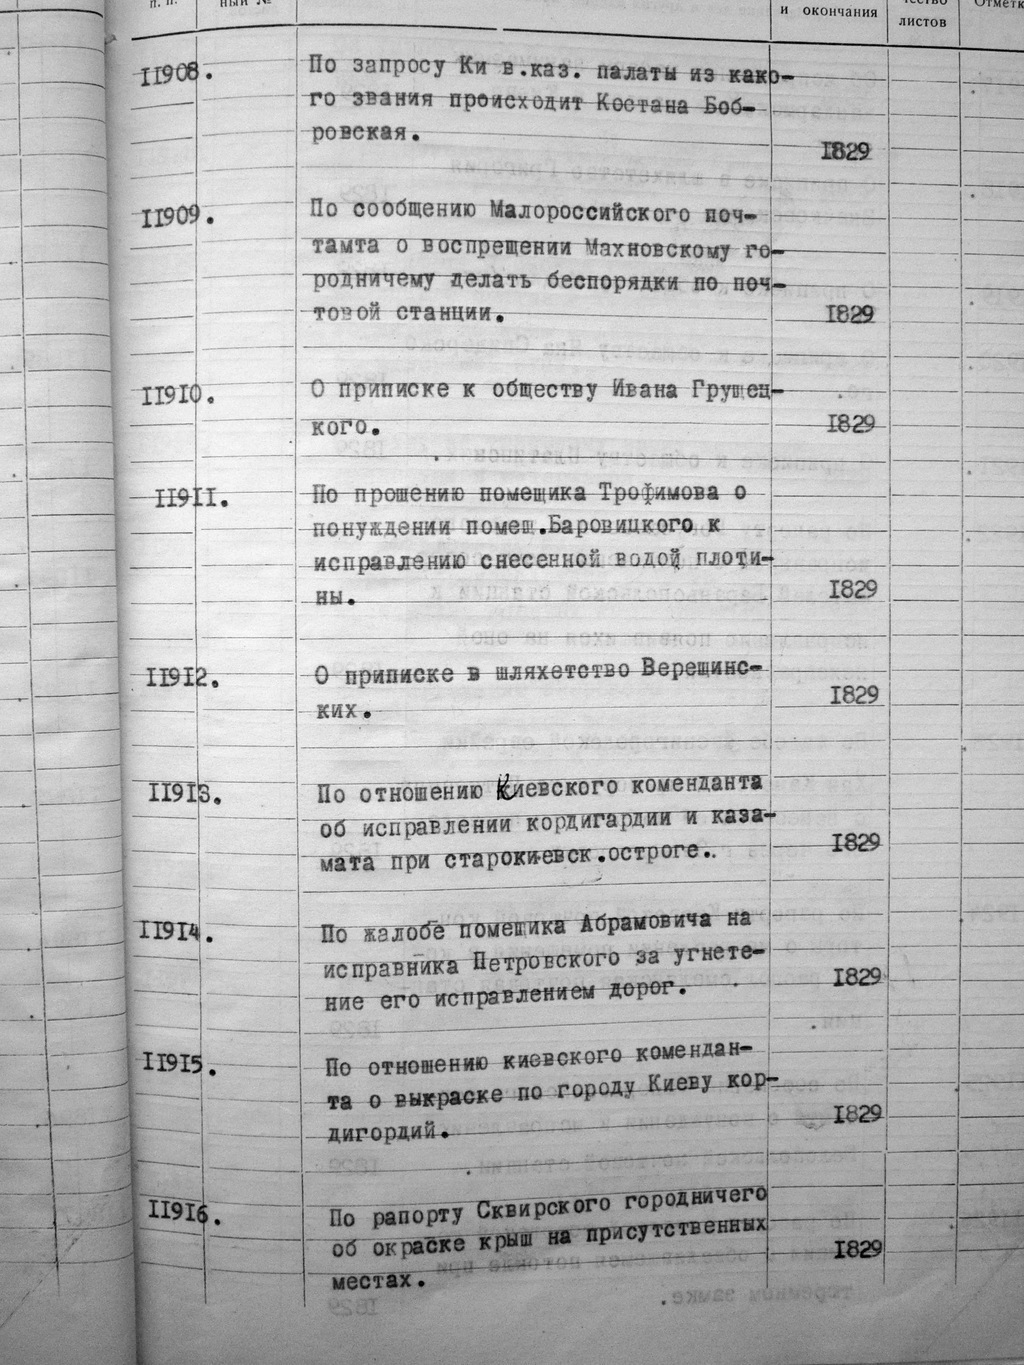 п. п.
ный №
и окончания
чество
листов
11908.
По запросу Ки в.каз. палаты из како-
го звания происходит Костана Боб-
ровская.
1829
11909.
По сообщению Малороссийского поч-
тамта о воспрещении Махновскому го-
родничему делать беспорядки по поч-
товой станции.
1829
11910.
О приписке к обществу Ивана Грушец-
кого.
1829
11911.
По прошению помещика Трофимова о
понуждении помещ.Баровицкого к
исправлению снесенной водой плоти-
ны.
1829
11912.
О приписке в шляхетство Верещинс-
ких.
1829
11913.
По отношению Киевского коменданта
об исправлении кордигардии и каза-
мата при старокиевск.остроге..
1829
11914.
По жалобе помещика Абрамовича на
исправника Петровского за угнете-
ние его исправлением дорог.
1829
11915.
По отношению киевского комендан-
та о выкраске по городу Киеву кор-
дигордий.
1829
11916.
По рапорту Сквирского городничего
об окраске крыш на присутственных
местах.
1829